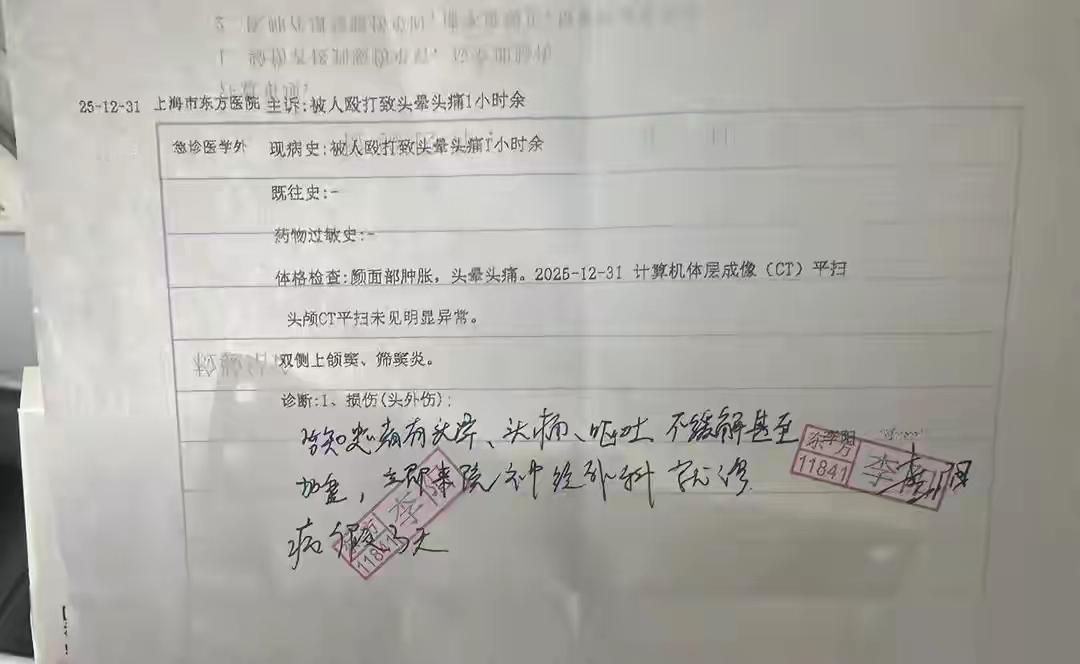 25-12-31 上海市东方医院 主诉:被人殴打致头晕头痛1小时余
急诊医学外 现病史:被人殴打致头晕头痛1小时余
既往史:-
药物过敏史:-
体格检查:颜面部肿胀，头晕头痛。2025-12-31 计算机体层成像（CT）平扫
头颅CT平扫未见明显异常。
双侧上颌窦、筛窦炎。
诊断:1、损伤(头外伤);
告知患者有头晕、头痛、呕吐不缓解甚至
加重，立即来院神经外科就诊
病假3天
东方
11841
李
11841